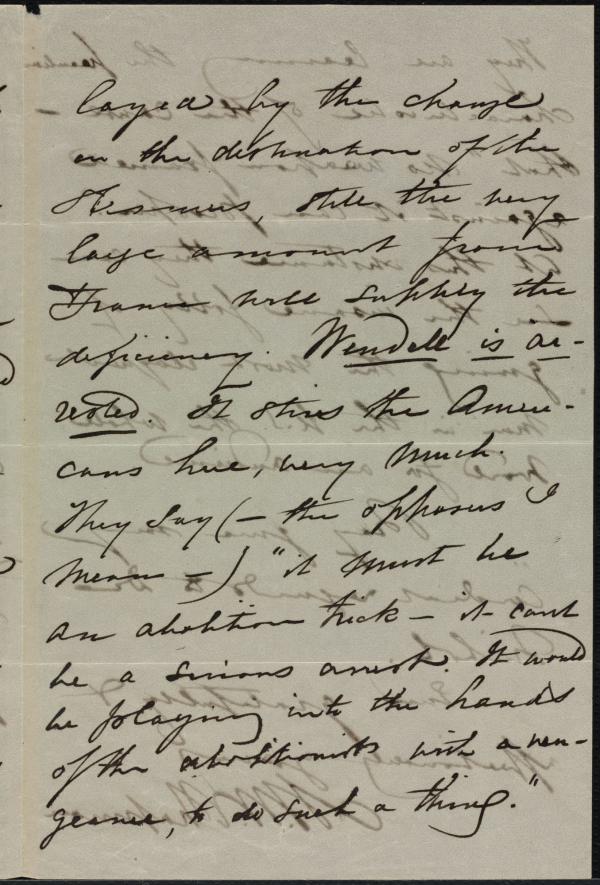 layed by the change
in the destination of the
Steamers, still the very
large amount from
France will supply the
deficiency. Wendell is ar-
rested. It stirs the Ameri-
cans here, very much.
They say (— the opposers I
mean —) "it must be
an abolition trick — it cant
be a serious arrest. It would
be playing into the hands
of the abolitionists with a ven-
geance, to do such a thing."